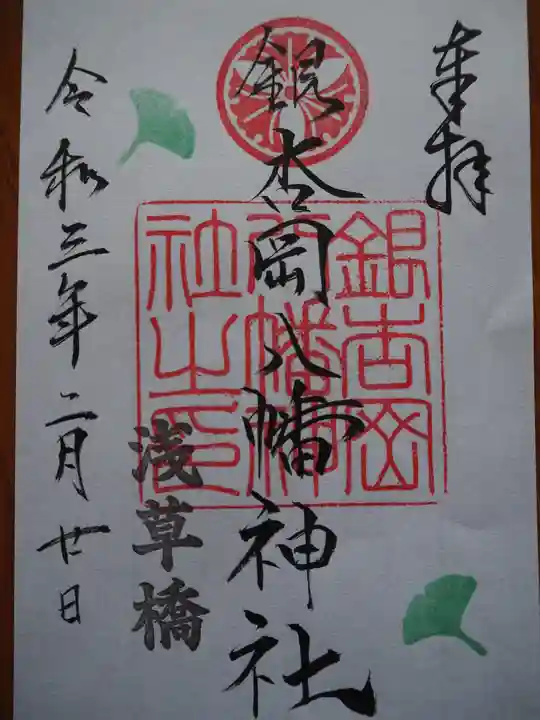 奉拝
銀杏岡八幡神社
銀杏岡八幡神社之印
浅草橋
令和三年二月廿日